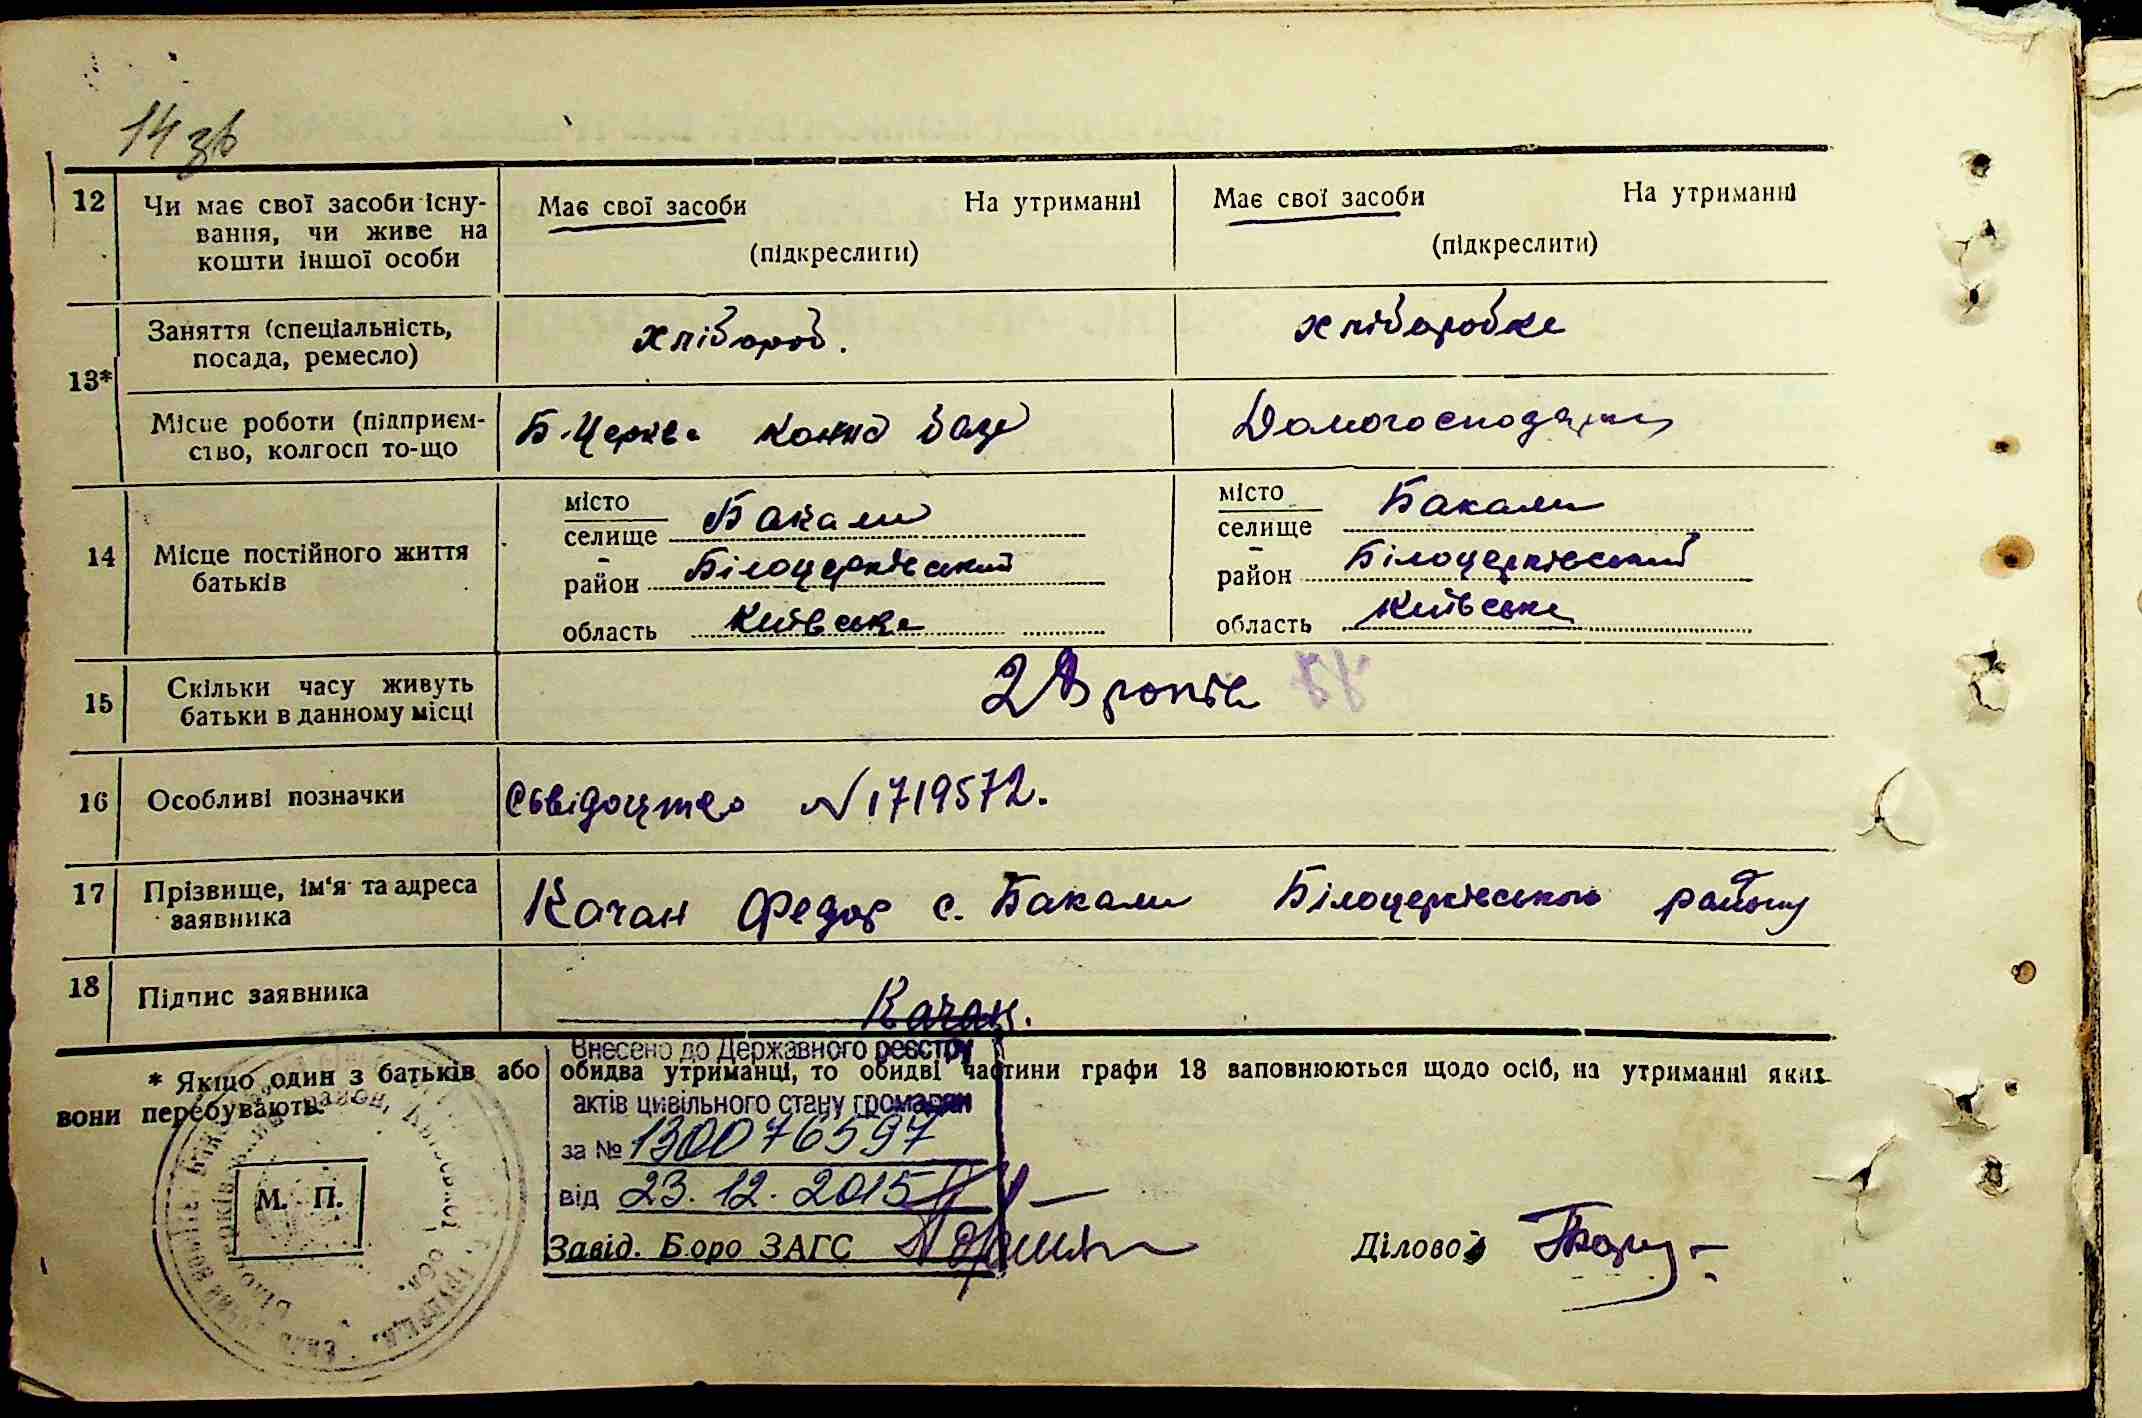 14 зв
12 Чи має свої засоби існу- Має свої засоби На утриманні Має свої засоби На утриманні
вання, чи живе на
кошти іншої особи (підкреслити) (підкреслити)
13* Заняття (спеціальність, хлібороб. хліборобка
посада, ремесло)
Місце роботи (підприєм- Б-Церква кінна база Домогосподарка
ство, колгосп то-що
14 Місце постійного життя місто Бакали місто Бакали
батьків селище селище
район Білоцерківський район Білоцерківський
область Київська область Київська
15 Скільки часу живуть років
батьки в данному місці
16 Особливі позначки Свідоцтво N 1719572.
17 Прізвище, ім'я та адреса Качан Федор с. Бакали Білоцерківського району
заявника
18 Підпис заявника Качан.
Внесено до Державного реєстру
* Якщо один з батьків або обидва утриманці, то обидві частини графи 13 заповнюються щодо осіб, на утриманні яких
вони перебувають.
актів цивільного стану громадян
за № 130076597
від 23.12.2015
М. П.
Завід. Боро ЗАГС
Діловод